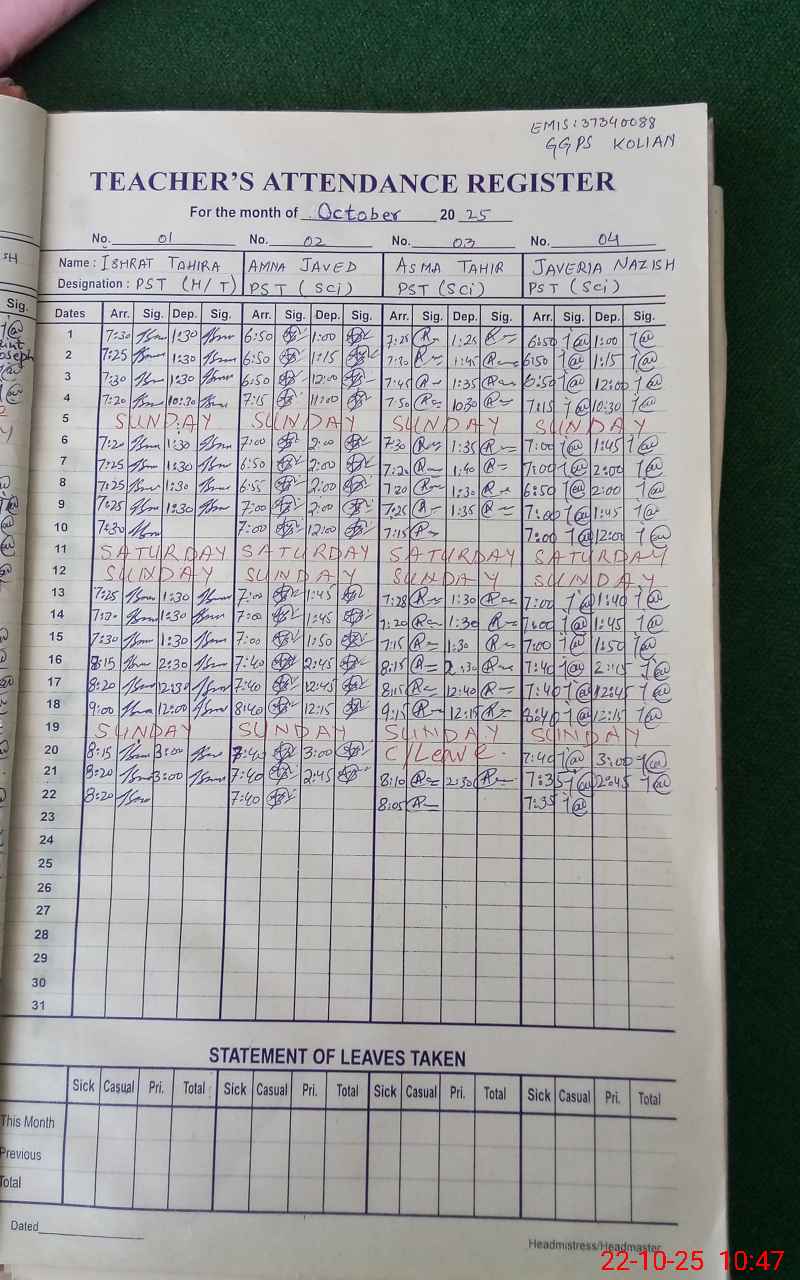 EMIS:37340088
GGPS KOLIAN
TEACHER'S ATTENDANCE REGISTER
For the month of October 2025
No. 01 No. 02 No. 03 No. 04
Name: ISHRAT TAHIRA AMNA JAVED ASMA TAHIR JAVERIA NAZISH
Designation: PST (H/T) PST (SCi) PST (SCi) PST (SCi)
Sig.
Dates Arr. Sig. Dep. Sig. Arr. Sig. Dep. Sig. Arr. Sig. Dep. Sig. Arr. Sig. Dep. Sig.
1 7:30 1:30 6:50 1:00 7:25 1:25 6:50 1:00
2 7:25 1:30 6:50 1:15 1:45 6:50 1:15
3 7:30 1:30 6:50 12:00 7:45 1:35 6:50 12:00
4 7:20 10:30 7:15 11:00 7:50 10:30 7:15 10:30
5 SUNDAY SUNDAY SUNDAY SUNDAY
6 7:20 1:30 7:00 2:00 7:30 1:35 7:00 1:45
7 7:25 1:30 6:50 2:00 7:20 1:40 7:00 2:00
8 7:25 1:30 6:55 2:00 7:20 1:30 6:50 2:00
9 7:25 1:30 7:00 2:00 7:25 1:35 7:00 1:45
10 7:30 7:00 12:00 7:15 7:00 12:00
11 SATURDAY SATURDAY SATURDAY SATURDAY
12 SUNDAY SUNDAY SUNDAY SUNDAY
13 7:25 1:30 7:00 1:45 7:28 1:30 7:00 1:40
14 1:30 7:00 1:45 7:20 1:30 7:00 1:45
15 7:30 1:30 7:00 1:50 7:15 1:30 7:00 1:50
16 8:15 2:30 7:40 2:45 8:15 2:30 7:40 2:15
17 8:20 12:30 7:40 12:45 8:15 12:40 7:40 12:45
18 9:00 12:00 8:40 12:15 9:15 12:15 8:40 12:15
19 SUNDAY SUNDAY SUNDAY SUNDAY
20 8:15 3:00 7:40 3:00 C/Leave 7:40 3:00
21 8:20 3:00 7:40 2:45 8:10 2:30 7:35 2:45
22 8:20 7:40 8:05 7:35
23
24
25
26
27
28
29
30
31
STATEMENT OF LEAVES TAKEN
Sick Casual Pri. Total Sick Casual Pri. Total Sick Casual Pri. Total Sick Casual Pri. Total
This Month
Previous
Total
Dated
Headmistress/Headmaster
22-10-25 10:47